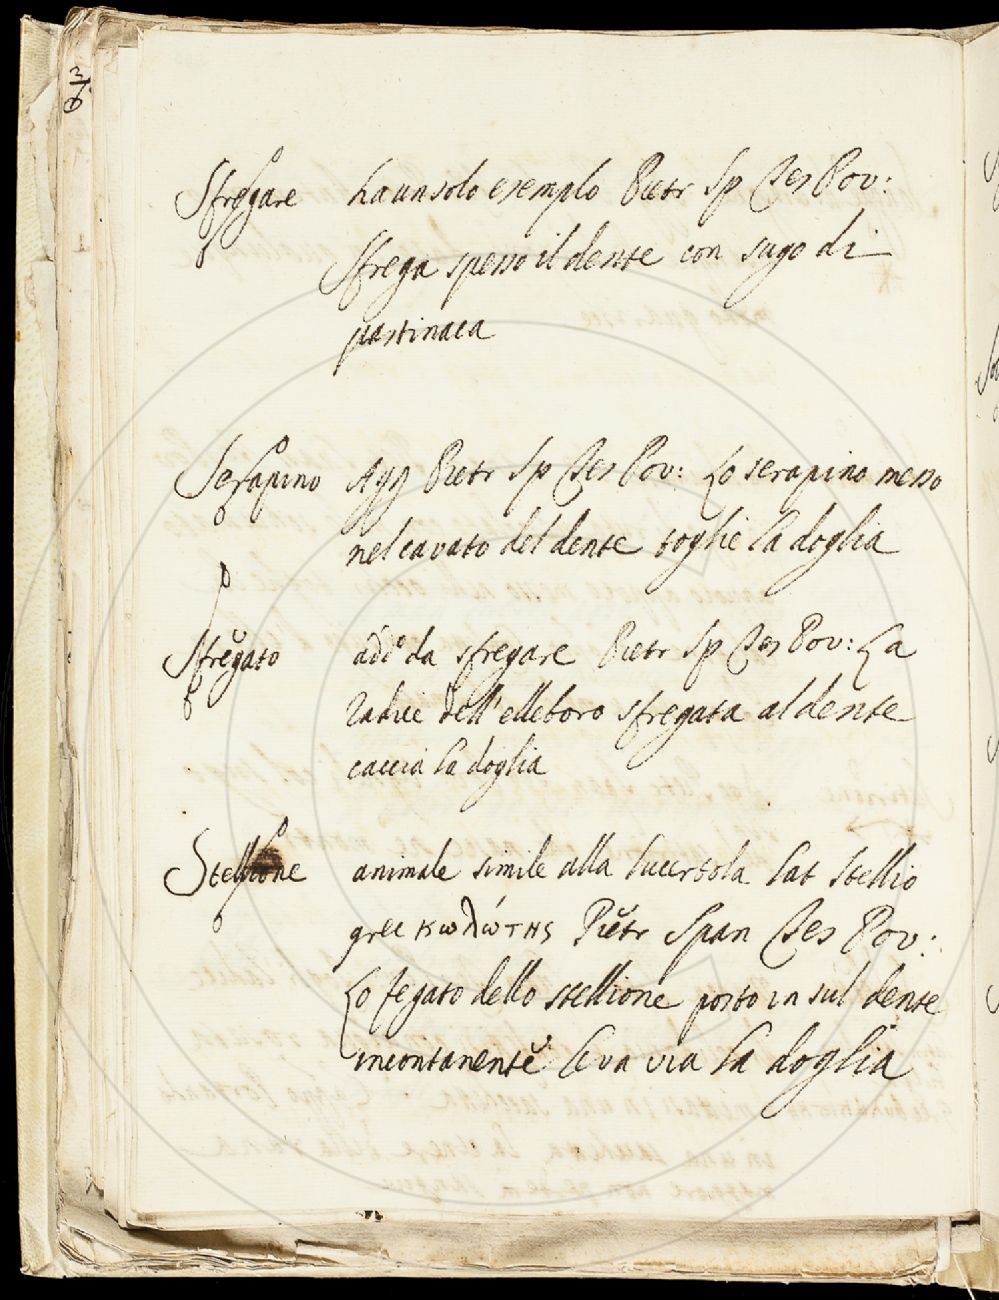 Sfregare ha un solo esemplo Pietr Sp Tes Pov:
Sfrega spesso il dente con sugo di
pastinaca
Serapino Agg Pietr Sp Tes Pov: Lo serapino messo
nel cavato del dente toglie la doglia
Sfregato add.o da sfregare Pietr Sp Tes Pov: La
radice dell'elleboro sfregata al dente
caccia la doglia
Stellione animale simile alla lucertola lat Stellio
grec κωλώτης Pietr Span Tes Pov:
Lo fegato dello stellione posto in sul dente
incontanente leva via la doglia